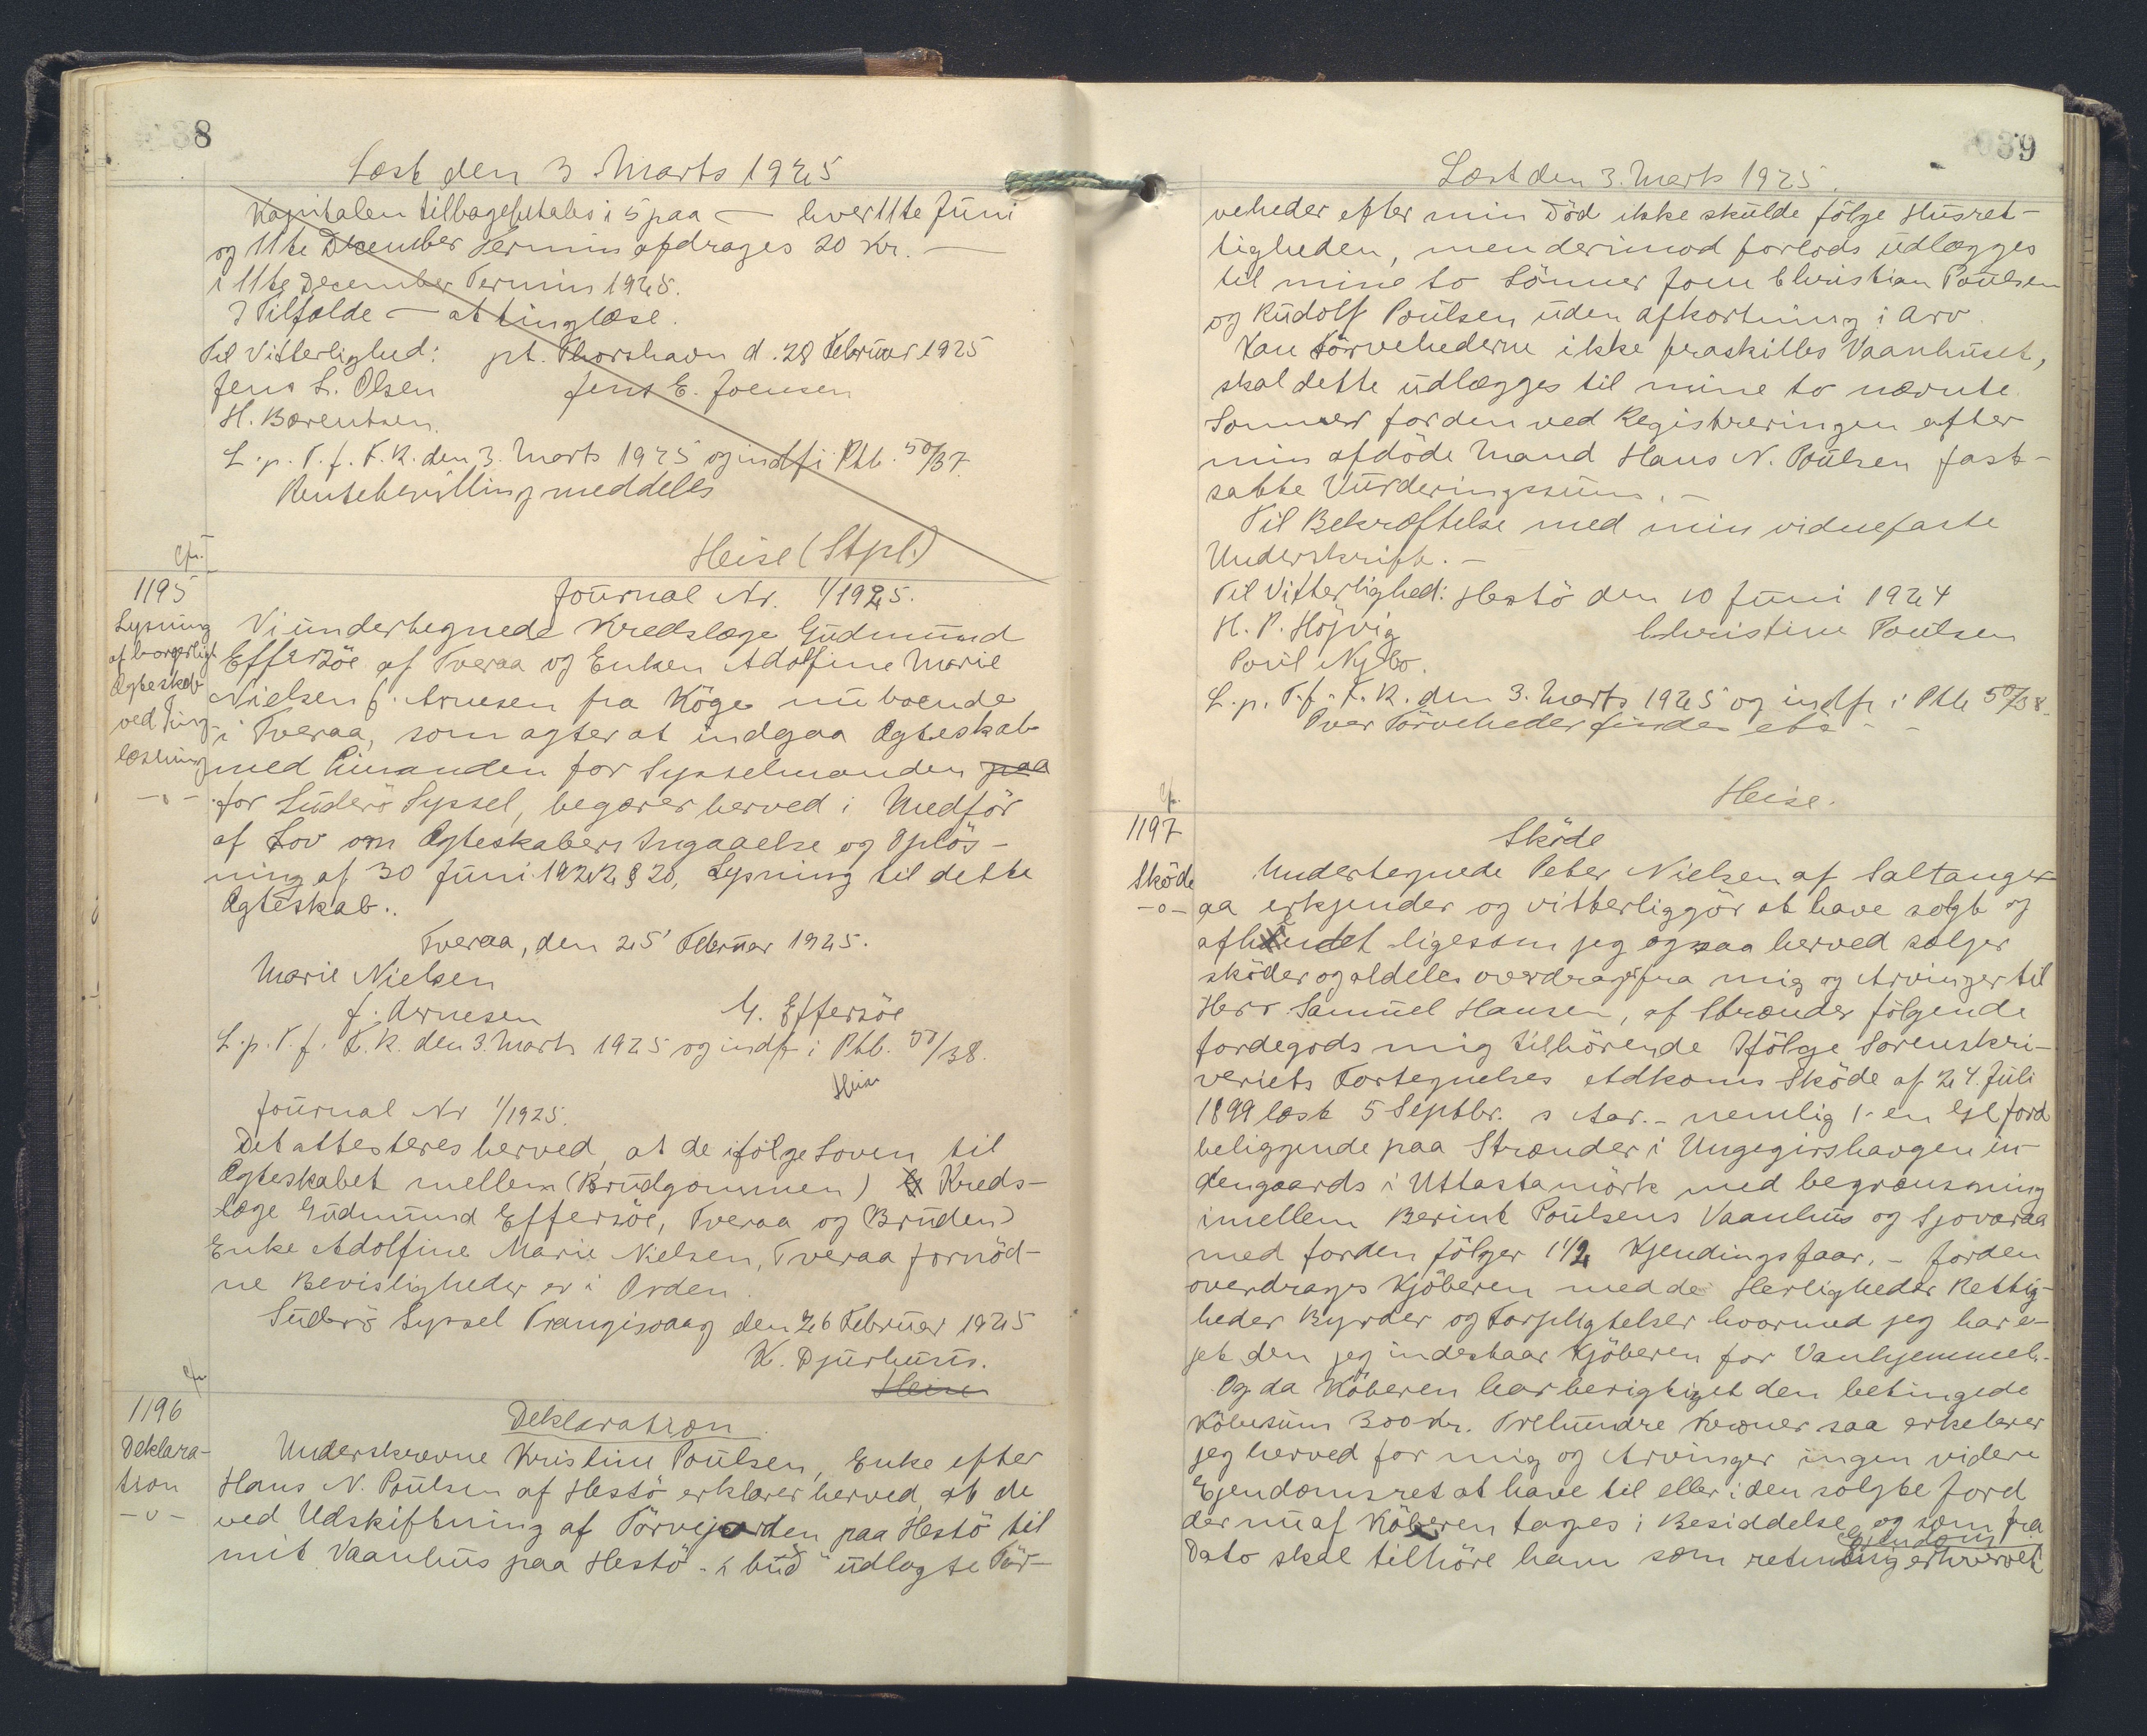 38
Læst den 3 Marts 1925
Kapitalen tilbagebetales i 5 paa — hver 11te Juni
og 11te December Termin afdrages 20 Kr. —
i 11te December Termin 1925.
I Tilfælde — at tinglæse.
Til Vitterlighed: pt. Thorshavn d. 28 Februar 1925
Jens L. Olsen Jens E. Joensen
H. Bærentsen.
L. p. T. f. F. R. den 3. Marts 1925 og indf i Ptb. 50/37.
Rentebevilling meddeles
Heise (Stpl.)
cfr.
1195
Lysning
af borgerligt
Ægteskab
ved Ting-
læsning
-o-
Journal Nr. 1/1925.
Vi undertegnede Kredslæge Gudmund
Effersöe af Tveraa og Enken Adolfine Marie
Nielsen f. Arnesen fra Köge nu boende
i Tveraa, som agter at indgaa Ægteskab
med hinanden for Sysselmanden paa
for Suderö Syssel, begærer herved i Medför
af Lov om Ægteskabers Ingaaelse og Oplös-
ning af 30 Juni 1922 § 20, Lysning til dette
Ægteskab..
Tveraa, den 25' Februar 1925.
Marie Nielsen
f. Arnesen G. Effersöe
L. p. T. f. F. R. den 3. Marts 1925 og indf i Ptb. 50/38.
Heise
Journal Nr 1/1925.
Det attesteres herved, at de ifölge Loven til
Ægteskabet mellem (Brudgommen) Kreds-
læge Gudmund Effersöe, Tveraa og (Bruden)
Enke Adolfine Marie Nielsen, Tveraa fornöd-
ne Bevisligheder er i Orden.
Suderö Syssel Trangisvaag den 26 Februar 1925
K. Djurhuus.
Heise
cfr
1196
Deklara-
tion
-o-
Deklaration.
Underskrevne Kristine Poulsen, Enke efter
Hans N. Poulsen af Hestö erklærer herved, at de
ved Udskiftning af Törvejorden paa Hestö til
mit Vaanhus paa Hestö "í búð" udlagte Tör-
39
Læst den 3. Marts 1925.
veheder efter min Död ikke skulde fölge Husret-
tigheden, men derimod forlods udlægges
til mine to Sönner Joen Christian Poulsen
og Rudolf Poulsen uden afkortning i Arv.
Kan Törvehederne ikke fraskilles Vaanhuset,
skal dette udlægges til mine to nævnte
Sønner for den ved Registreringen efter
min afdöde Mand Hans N. Poulsen fast-
satte Vurderingssum. -
Til Bekræftelse med min vidnefaste
Underskrift. -
Til Vitterlighed: Hestö den 10 Juni 1924
H. P. Höjvig Christine Poulsen
Poul Nybo.
L. p. T. f. F. R. den 3. Marts 1925 og indfr i Ptb 50/38.
Over Törveheder findes ets - -
Heise.
cfr.
1197
Sköde
-o-
Sköde
Undertegnede Peter Nielsen af Saltanger-
aa erkjender og vitterliggör at have solgt og
afhændet ligesom jeg ogsaa herved sælger
sköder og aldeles overdrager fra mig og Arvinger til
Herr Samuel Hansen, af Strænder fölgende
Jordegods mig tilhörende Ifölge Sorenskri-
veriets Fortegnelses Adkoms Sköde af 24. Juli
1899 læst 5 Septbr. s Aar. - nemlig 1 - en Gl Jord
beliggende paa Strænder i Ungegirshavgen in-
dengaards i Uttastamörk med begrænsning
imellem Berint Poulsens Vaanhus og Sjovaraa
med Jorden fölger 1 1/2 Kjendingsfaar. - Jorden
overdrages Kjöberen med de Herligheder Rettig-
heder Byrder og Forpligtelser hvormed jeg har e-
jet den jeg indestaar Kjöberen for Vanhjemmel. -
Og da Köberen har berigtiget den betingede
Köbesum 300 Kr. Trehundre Kroner saa erkelærer
jeg herved for mig og Arvinger ingen videre
Ejendomsret at have til eller i den solgte Jord
der nu af Köberen tages i Besiddelse og som fra
Dato skal tilhöre ham som retmæssig erhvervet
Ejendom